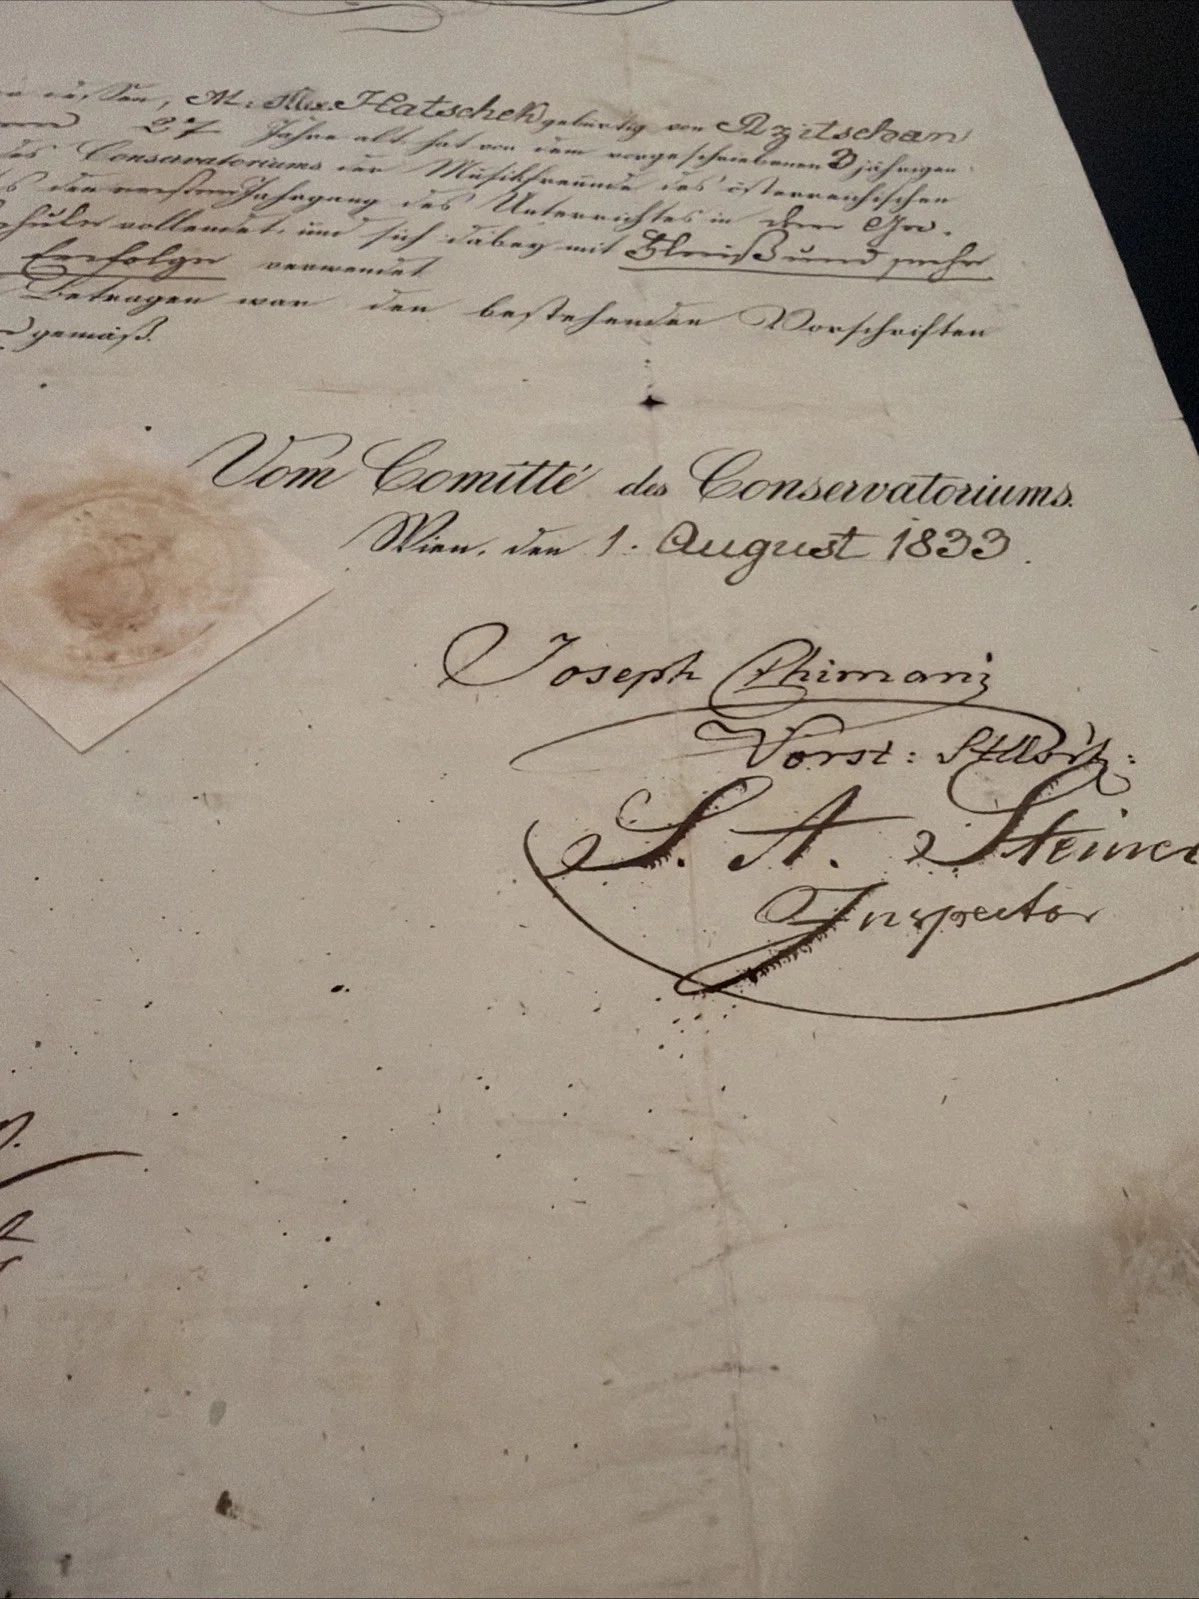 M: Alex. Hatschek gebürtig von Rzitschan
27 Jahre alt hat von dem vorgeschriebenen 3 jährigen
des Conservatoriums der Musikfreunde des österreichischen
den ersten Jahrgang des Unterrichtes in der
Schule vollendet, und sich dabey mit Fleiß und sehr
Erfolge verwendet
Betragen war den bestehenden Vorschriften
gemäß.
Vom Comitté des Conservatoriums.
Wien, den 1. August 1833.
Joseph
Vorst:
S. A. Steiner
Inspector